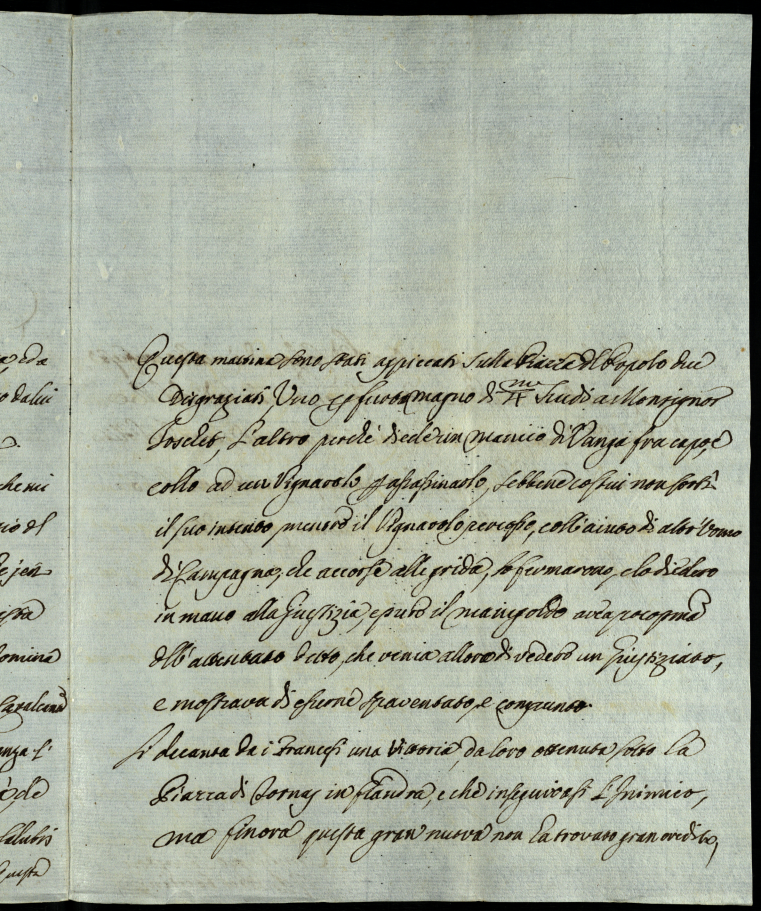 Questa mattina sono stati appiccati sulla Piazza del Popolo due
Disgraziati, Uno per furto magno di m/4 Scudi a Monsignor
l'altro perché diede un manico di Vanga fra capo, e
collo ad un Vignarolo p assassinarlo, sebbene costui non sortì
il suo intento, mentre il Vignarolo percosso, coll'aiuto di altr'Uomo
di Campagna, che accorse alle grida, lo fermarono, e lo diedero
in mano alla Giustizia, e pure il manigoldo avea poco prima
dell'attentato detto, che venia allora di vedere un Giustiziato,
e mostrava di esserne spaventato, e compunto.
Si decanta da i Francesi una Vittoria, da loro ottenuta sotto la
Piazza di Tornay in fiandra, e che inseguivasi l'Inimico,
ma finora questa gran nuova non ha trovato gran credito,